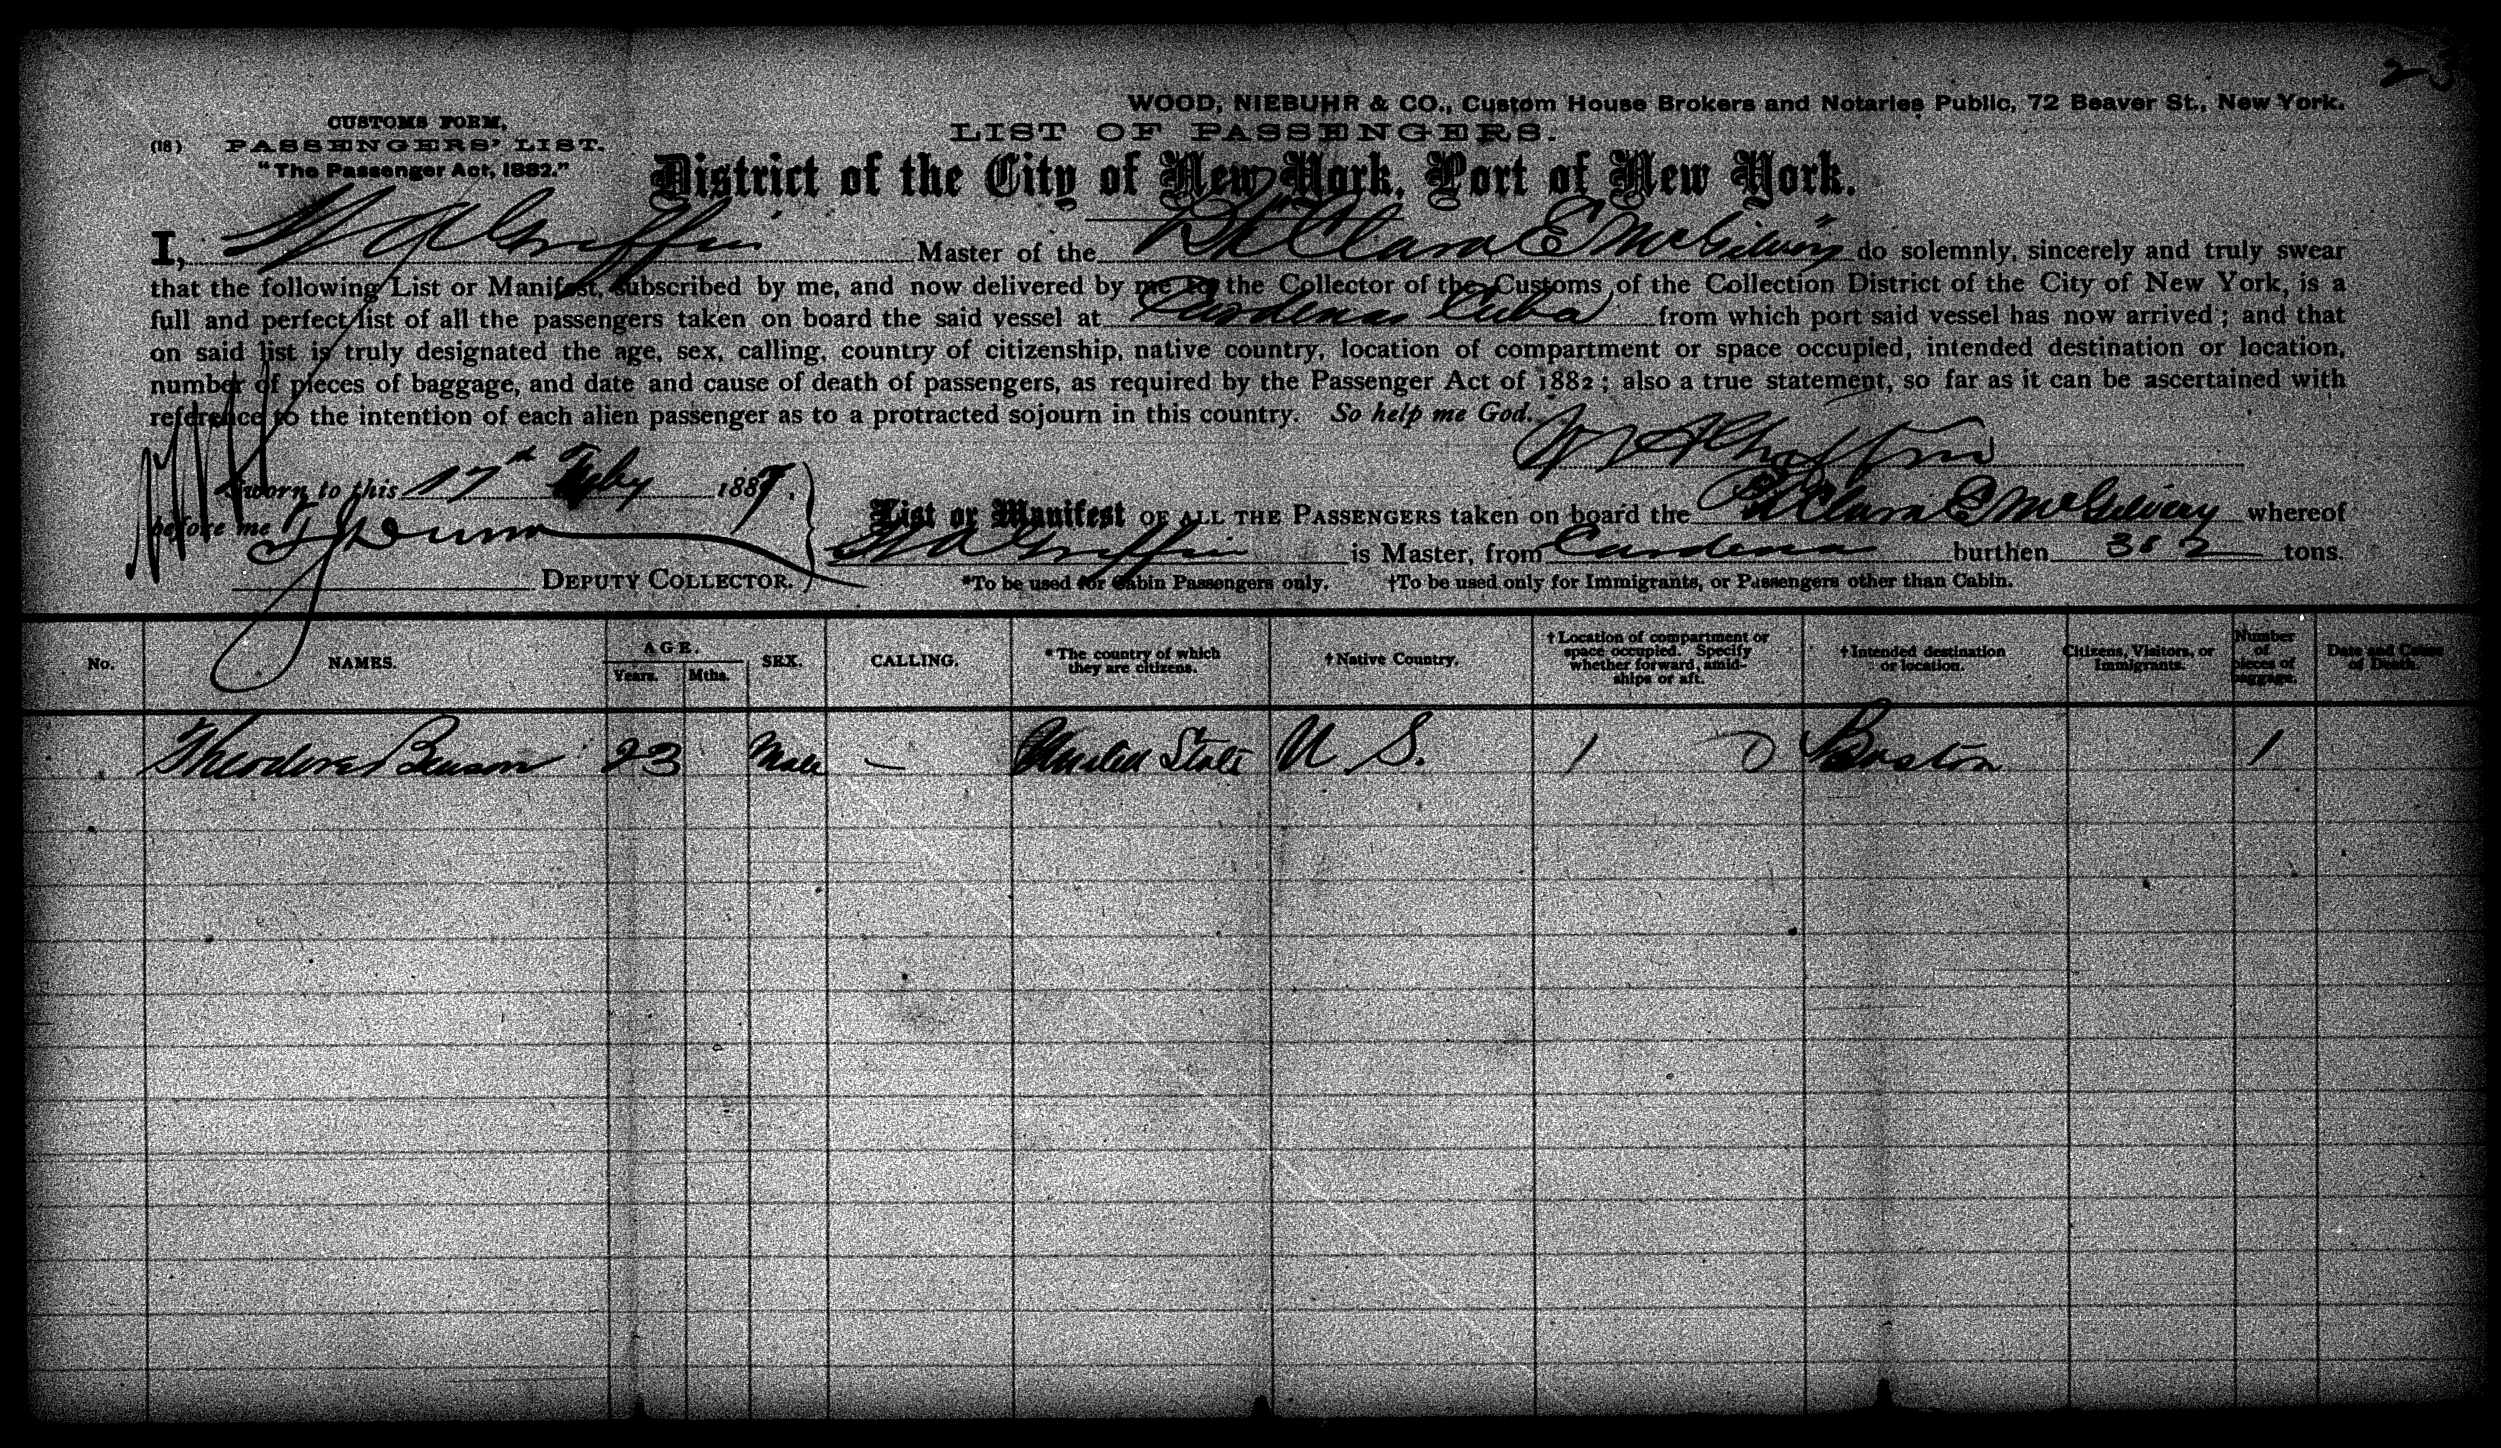 23
WOOD, NIEBUHR & CO., Custom House Brokers and Notaries Public, 72 Beaver St., New York.
CUSTOMS FORM.
LIST OF PASSENGERS.
(18) PASSENGERS' LIST.
"The Passenger Act, 1882."
District of the City of New York, Port of New York.
I, W A Griffin Master of the Bk Clara E McGilvery do solemnly, sincerely and truly swear
that the following List or Manifest, subscribed by me, and now delivered by me to the Collector of the Customs of the Collection District of the City of New York, is a
full and perfect list of all the passengers taken on board the said vessel at Cardenas Cuba from which port said vessel has now arrived; and that
on said list is truly designated the age, sex, calling, country of citizenship, native country, location of compartment or space occupied, intended destination or location,
number of pieces of baggage, and date and cause of death of passengers, as required by the Passenger Act of 1882; also a true statement, so far as it can be ascertained with
reference to the intention of each alien passenger as to a protracted sojourn in this country. So help me God.
W A Griffin
Sworn to this 17th Feby 188
before me Dunn
DEPUTY COLLECTOR.
List or Manifest OF ALL THE PASSENGERS taken on board the Bk Clara E McGilvery whereof
W A Griffin is Master, from Cardenas burthen 382 tons.
*To be used for Cabin Passengers only. †To be used only for Immigrants, or Passengers other than Cabin.
No. NAMES. AGE. Years. Mths. SEX. CALLING. *The country of which they are citizens. †Native Country. †Location of compartment or space occupied. Specify whether forward, amidships or aft. †Intended destination or location. Citizens, Visitors, or Immigrants. Number of pieces of baggage. Date and Cause of Death.
Theodore Benson 23 Male — United State U S. 1 Boston 1